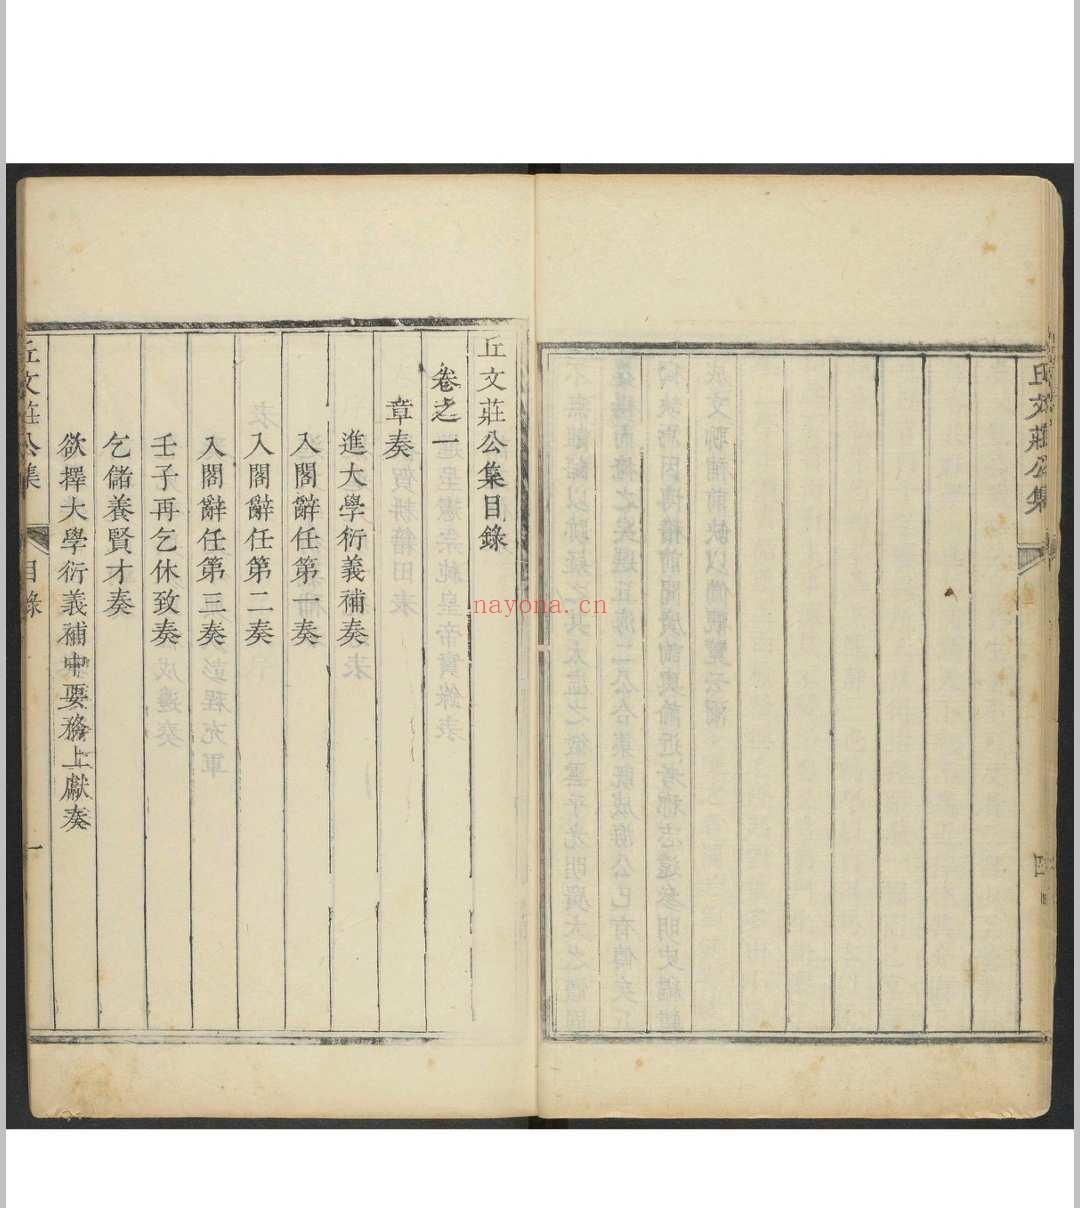 丘文莊公集
四
丘文莊公集目錄
卷之一
章奏
進大學衍義補奏
入閣辭任第一奏
入閣辭任第二奏
入閣辭任第三奏
壬子再乞休致奏
乞儲養賢才奏
欲擇大學衍義補中要務上獻奏
丘文莊公集
目錄
一
nayona.cn